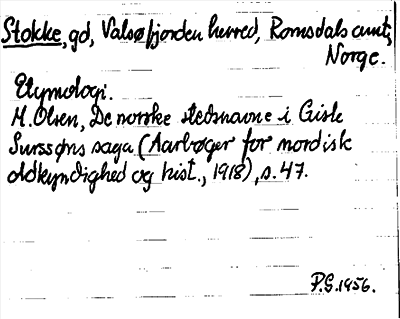 Stokke, gd, Valsøfjorden herred, Romsdals amt,
Norge.
Etymologi.
M. Olsen, De norske stedsnavne i Gisle
Surssøns saga (Aarbøger for nordisk
oldkyndighed og hist., 1918), s. 47.
P.G. 1956.